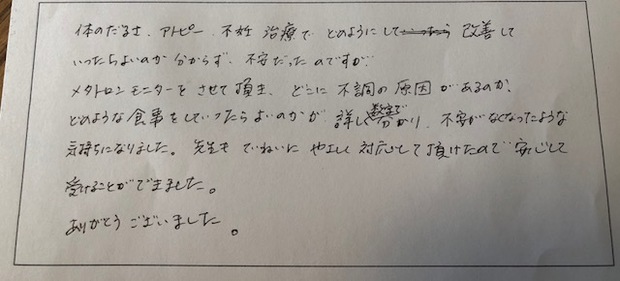 体のだるさ、アトピー、不妊治療で どのようにして 改善して
いったらよいのか 分からず、不安だったのですが、
メタトロンモニターをさせて頂き、どこに 不調の原因があるのか、
どのような食事をしていったらよいのかが 詳しく数字で分かり、不安がなくなったような
気持ちになりました。先生も ていねいに やさしく 対応して頂けたので 安心して
受けることができました。
ありがとうございました。